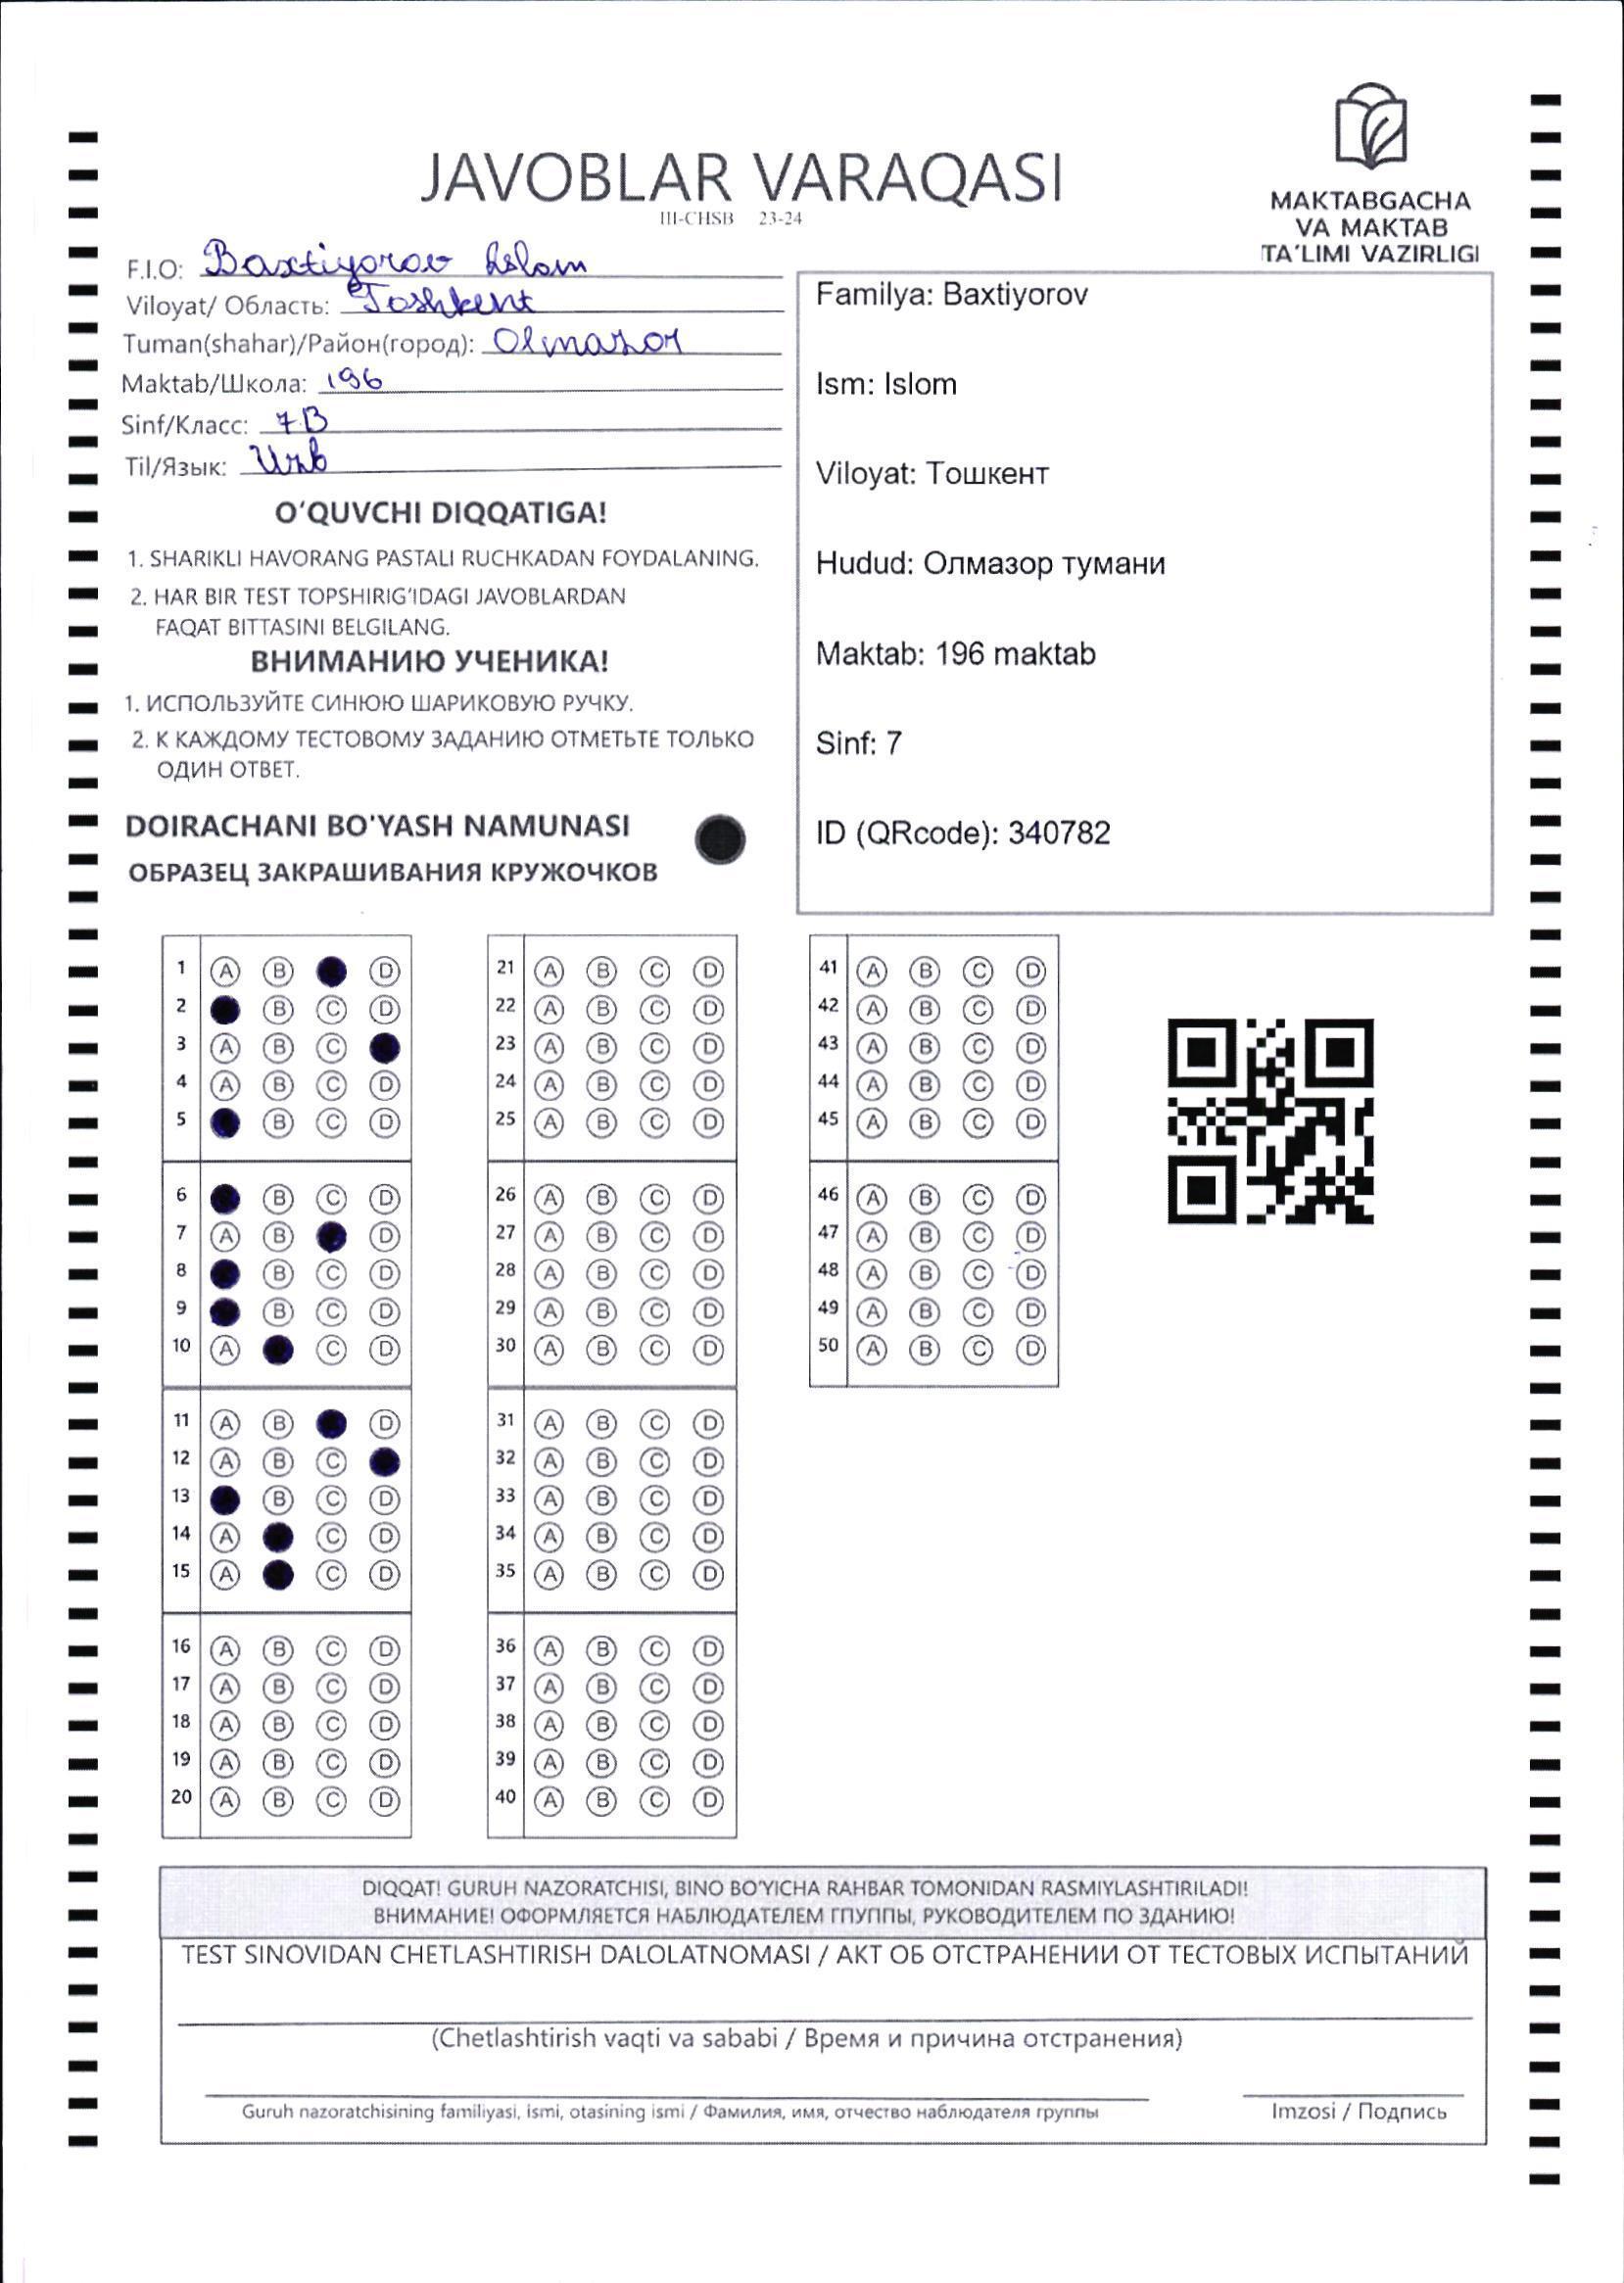 JAVOBLAR VARAQASI
III-CHSB 23-24
MAKTABGACHA
VA MAKTAB
TA'LIMI VAZIRLIGI
F.I.O: Baxtiyorov Islom
Viloyat/ Область: Toshkent
Tuman(shahar)/Район(город): Olmazor
Maktab/Школа: 196
Sinf/Класс: 7B
Til/Язык: Uzb
O'QUVCHI DIQQATIGA!
1. SHARIKLI HAVORANG PASTALI RUCHKADAN FOYDALANING.
2. HAR BIR TEST TOPSHIRIG'IDAGI JAVOBLARDAN
FAQAT BITTASINI BELGILANG.
ВНИМАНИЮ УЧЕНИКА!
1. ИСПОЛЬЗУЙТЕ СИНЮЮ ШАРИКОВУЮ РУЧКУ.
2. К КАЖДОМУ ТЕСТОВОМУ ЗАДАНИЮ ОТМЕТЬТЕ ТОЛЬКО
ОДИН ОТВЕТ.
DOIRACHANI BO'YASH NAMUNASI
ОБРАЗЕЦ ЗАКРАШИВАНИЯ КРУЖОЧКОВ
Familya: Baxtiyorov
Ism: Islom
Viloyat: Тошкент
Hudud: Олмазор тумани
Maktab: 196 maktab
Sinf: 7
ID (QRcode): 340782
1 A B D
2 B C D
3 A B C
4 A B C D
5 B C D
6 B C D
7 A B D
8 B C D
9 B C D
10 A C D
11 A B D
12 A B C
13 B C D
14 A C D
15 A C D
16 A B C D
17 A B C D
18 A B C D
19 A B C D
20 A B C D
21 A B C D
22 A B C D
23 A B C D
24 A B C D
25 A B C D
26 A B C D
27 A B C D
28 A B C D
29 A B C D
30 A B C D
31 A B C D
32 A B C D
33 A B C D
34 A B C D
35 A B C D
36 A B C D
37 A B C D
38 A B C D
39 A B C D
40 A B C D
41 A B C D
42 A B C D
43 A B C D
44 A B C D
45 A B C D
46 A B C D
47 A B C D
48 A B C D
49 A B C D
50 A B C D
DIQQAT! GURUH NAZORATCHISI, BINO BO'YICHA RAHBAR TOMONIDAN RASMIYLASHTIRILADI!
ВНИМАНИЕ! ОФОРМЛЯЕТСЯ НАБЛЮДАТЕЛЕМ ГПУППЫ, РУКОВОДИТЕЛЕМ ПО ЗДАНИЮ!
TEST SINOVIDAN CHETLASHTIRISH DALOLATNOMASI / АКТ ОБ ОТСТРАНЕНИИ ОТ ТЕСТОВЫХ ИСПЫТАНИЙ
(Chetlashtirish vaqti va sababi / Время и причина отстранения)
Guruh nazoratchisining familiyasi, ismi, otasining ismi / Фамилия, имя, отчество наблюдателя группы
Imzosi / Подпись